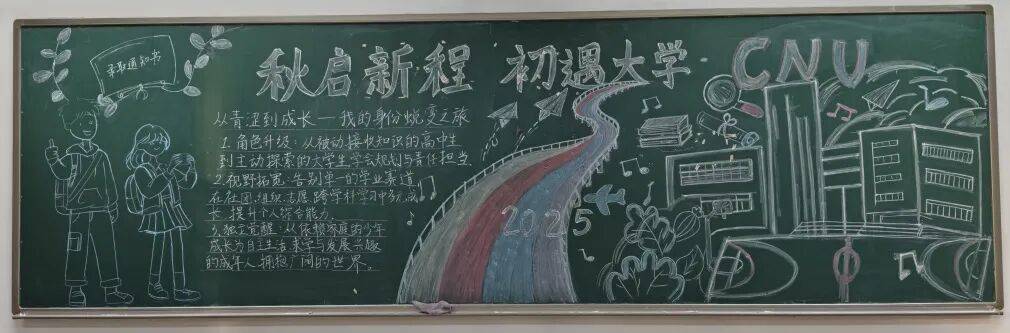 录取通知书
秋启新程 初遇大学
CNU
从青涩到成长一我的身份蜕变之旅
1.角色升级:从被动接收知识的高中生
到主动探索的大学生学会规划与责任担当
2.视野拓宽:告别单一的学业赛道,
在社团、组织、志愿、跨学科学习中多元成
长,提升个人综合能力
3.独立觉醒:从依赖家庭的少年
成长为自主生活、求学与发展兴趣
的成年人,拥抱广阔的世界。
2025